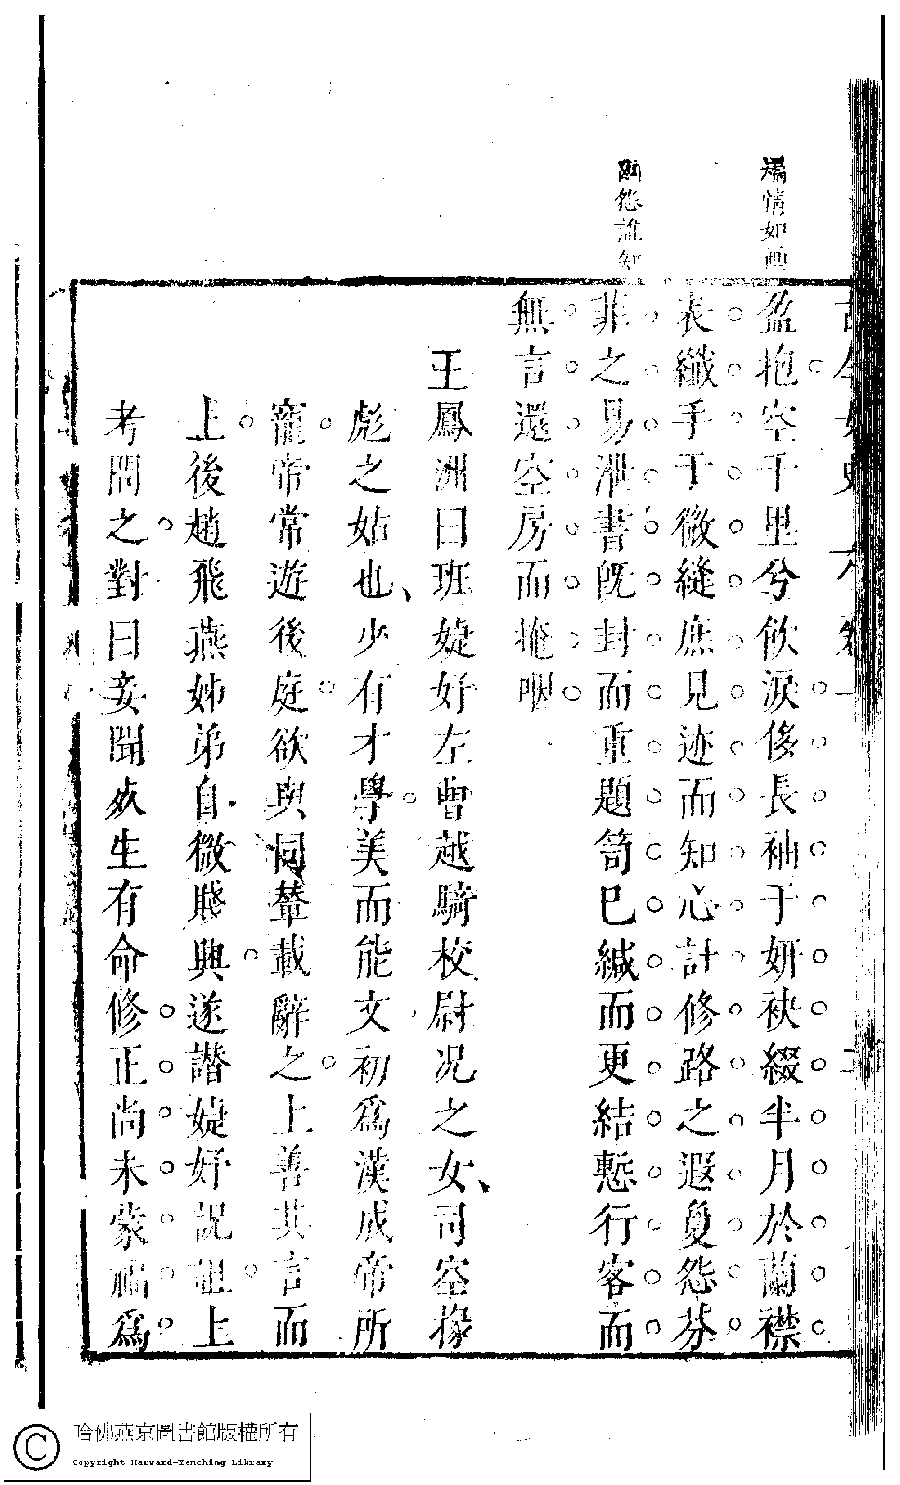 情如画
怨誰知
古今女史 六卷
盈抱空千里兮飲淚侈長袖于妍袂綴半月於蘭襟
表纖手于微縫庶見迹而知心計修路之遐夐怨芬
菲之易泄書旣封而重題笥已緘而更結慙行客而
無言還空房而掩咽
王鳳洲曰班婕妤左曹越騎校尉况之女司空掾
彪之姑也少有才學美而能文初爲漢成帝所
寵帝常遊後庭欲與同輦載辭之上善其言而
上後趙飛燕姊弟自微賤興遂譖婕妤詛上
考問之對曰妾聞死生有命修正尚未蒙福爲
哈佛燕京圖書館版權所有
Copyright Harvard-Yenching Library